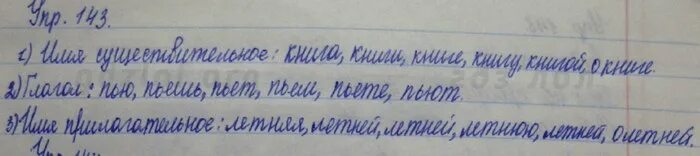 Упр. 143.
1) Имя существительное: книга, книги, книге, книгу, книгой, о книге.
2) Глагол: пью, пьешь, пьет, пьем, пьете, пьют.
3) Имя прилагательное: летняя, летней, летней, летнюю, летней, о летней.